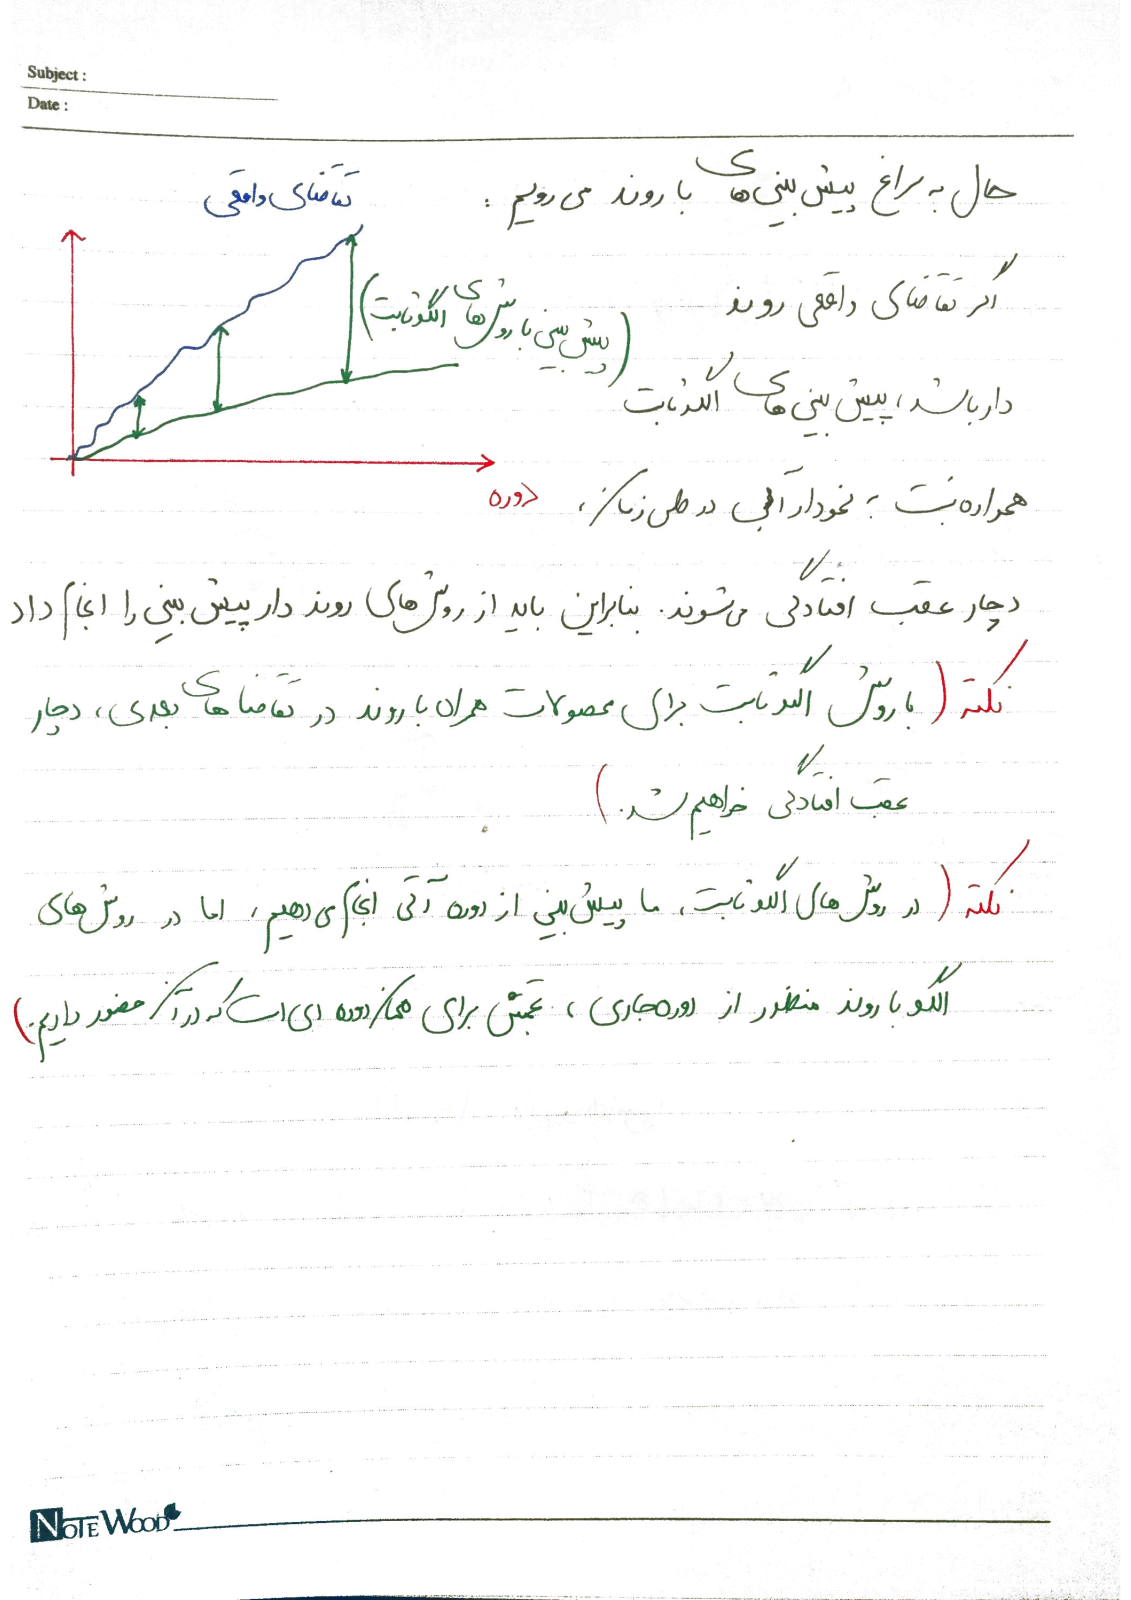 Subject :
Date :
حال به سراغ پیش بینی های با روند می رویم :
تقاضای واقعی
اگر تقاضای واقعی روند
(پیش بینی با روش های الگو ثابت)
دار باشد، پیش بینی های الگو ثابت
همواره نسبت به نمودار آبی در طی زمان،
دوره
دچار عقب افتادگی می شوند. بنابراین باید از روش های روند دار پیش بینی را انجام داد
نکته ( با روش الگو ثابت برای محصولات همراه با روند در تقاضا های بعدی، دچار
عقب افتادگی خواهیم شد. )
نکته ( در روش های الگو ثابت، ما پیش بینی از دوره آتی انجام می دهیم، اما در روش های
الگو با روند منظور از دوره جاری، تخمینش برای همان دوره ای است که در آن حضور داریم. )
NOTE WOOD